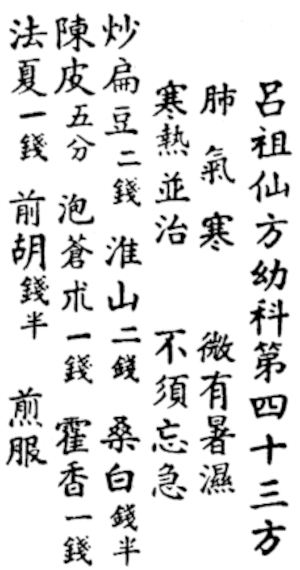 呂祖仙方幼科第四十三方
肺氣寒 微有暑濕
寒熱並治 不須忘急
炒扁豆二錢 淮山二錢 桑白錢半
陳皮五分 泡蒼朮一錢 霍香一錢
法夏一錢 前胡錢半 煎服